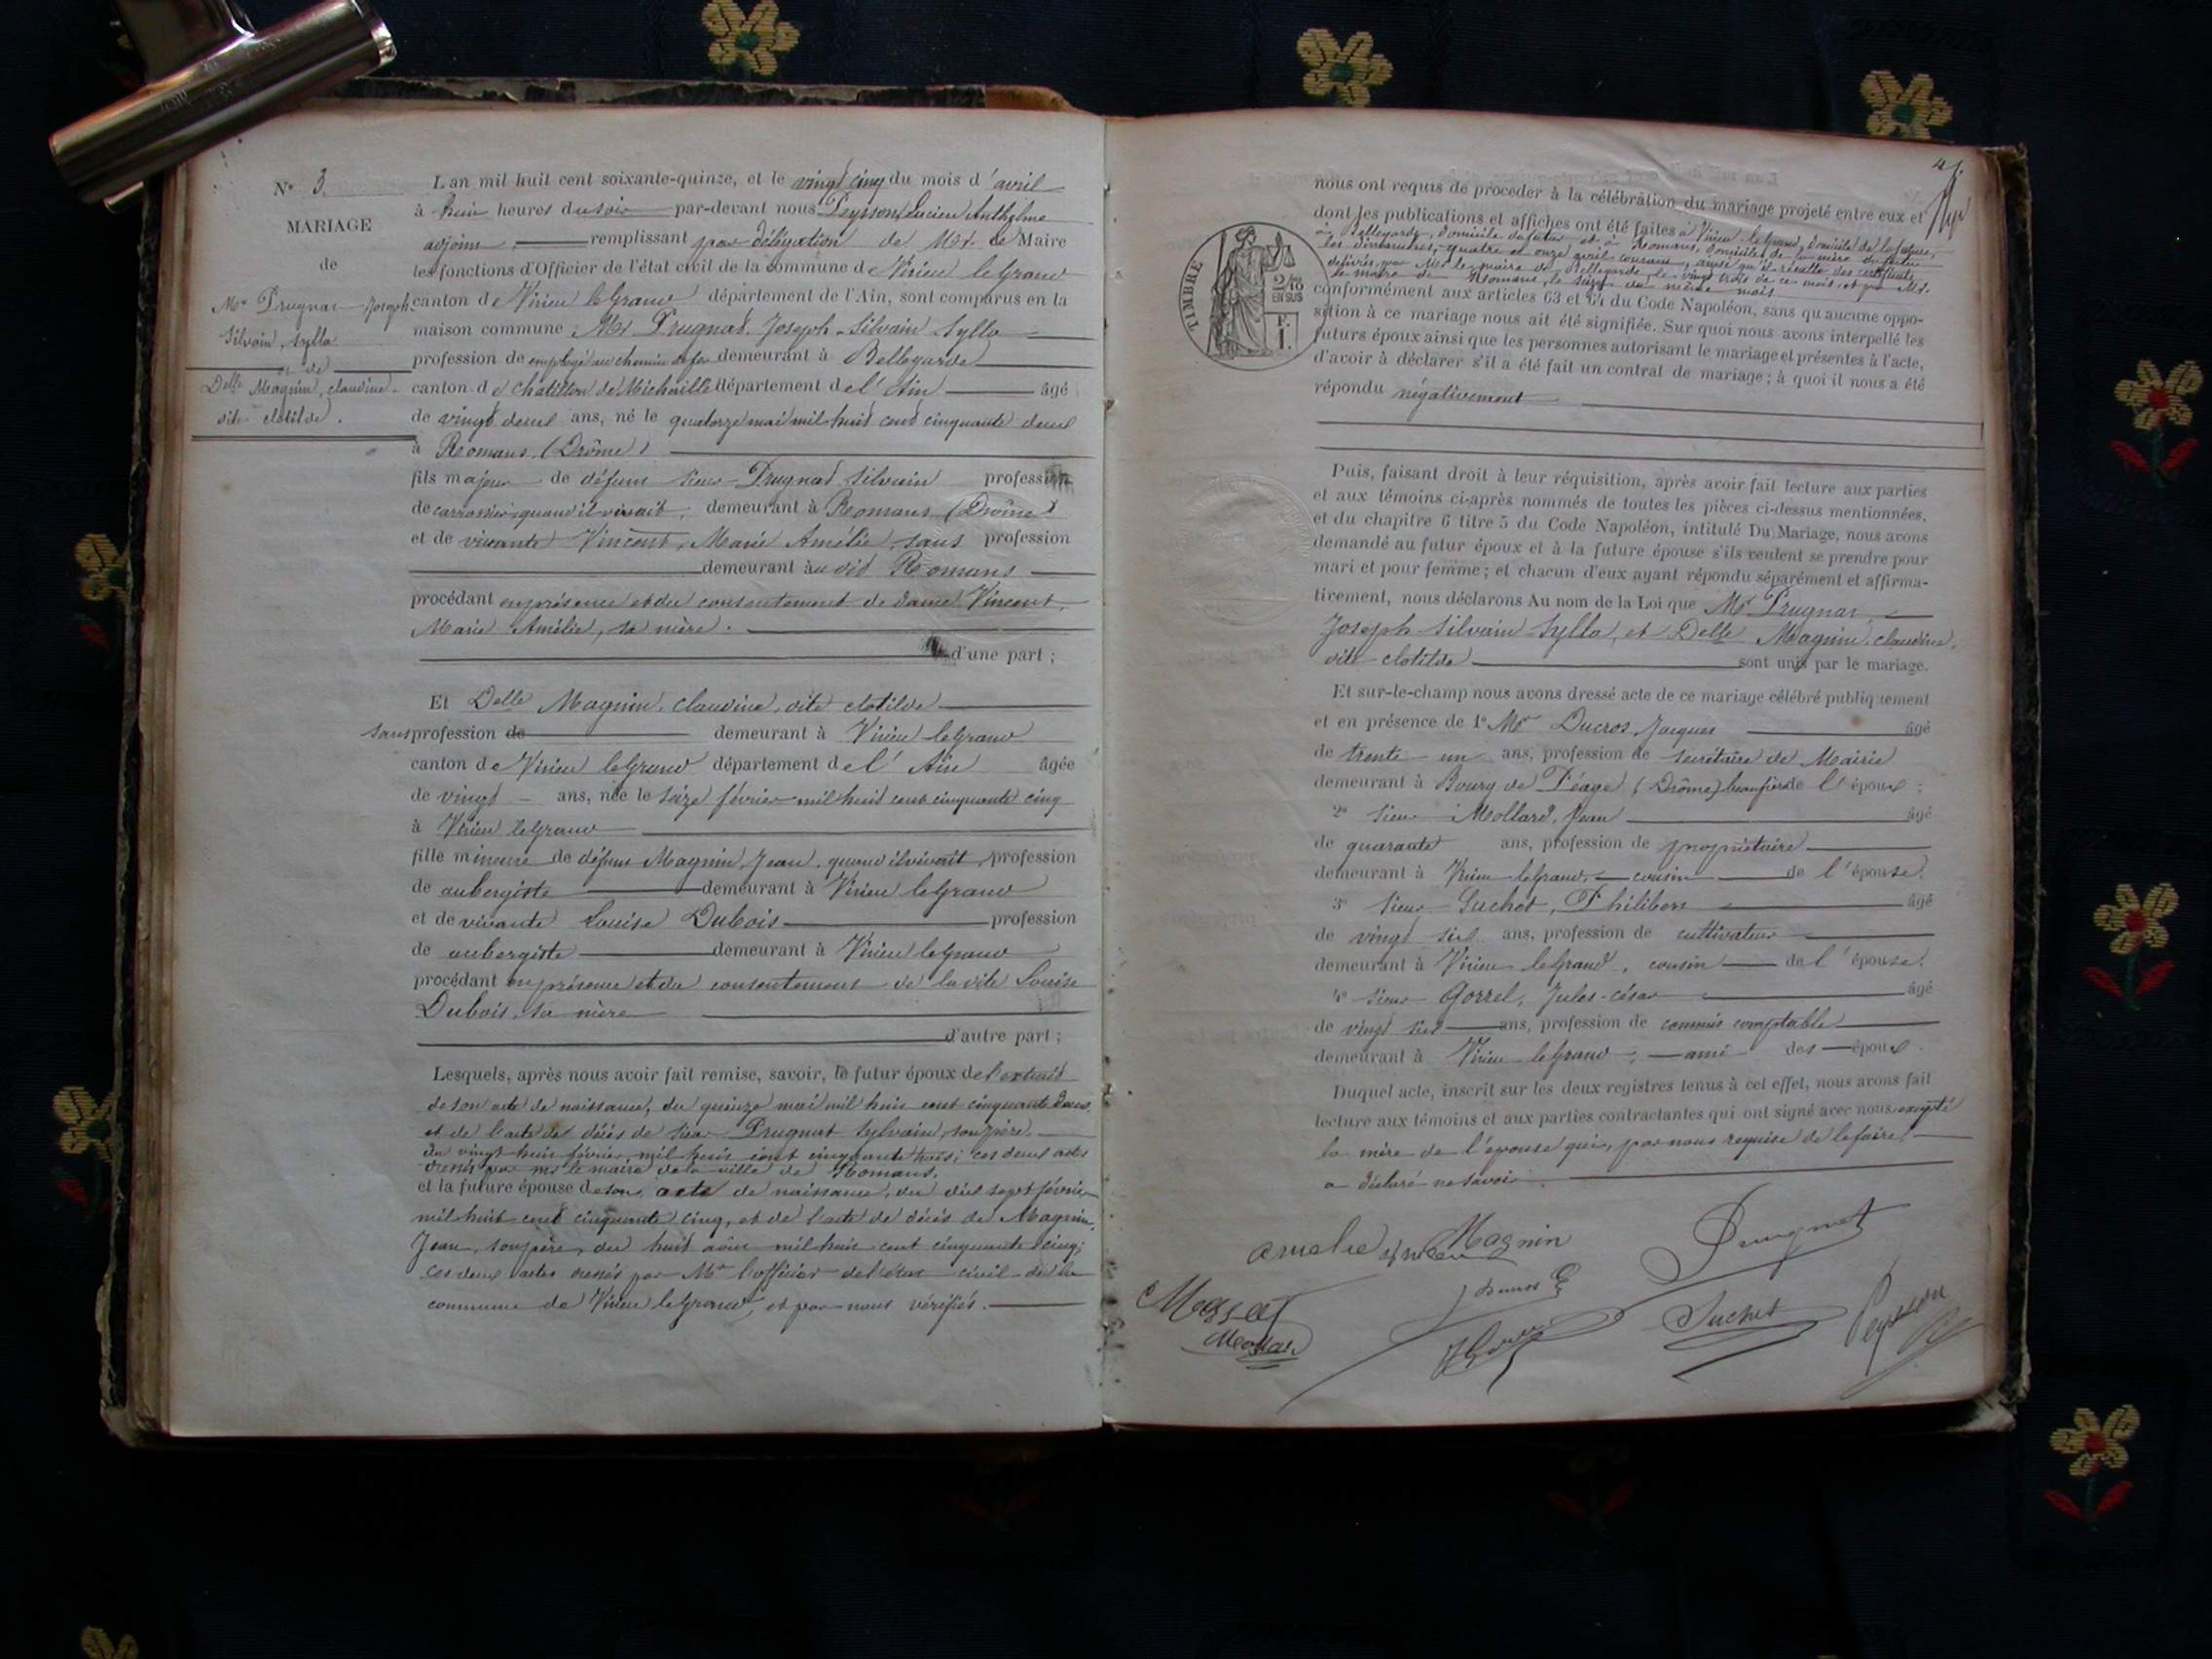 N° 3.
MARIAGE
de
Mr Prugnat Joseph-
Silvain, Sylla
et de
Delle Magnin, claudine-
dite clotilde.
L'an mil huit cent soixante-quinze, et le vingt cinq du mois d'avril
à huit heures du soir par-devant nous Peysson, Lucien Anthelme
adjoint, remplissant par délégation de Mr. le Maire
les fonctions d'Officier de l'état civil de la commune de Virieu leGrand
canton de Virieu leGrand département de l'Ain, sont comparus en la
maison commune : Mr Prugnat, Joseph-Silvain Sylla
profession de employé au chemin de fer demeurant à Bellegarde
canton de Chatillon de Michaille département de l'Ain âgé
de vingt deux ans, né le quatorze mai mil huit cent cinquante deux
à Romans, (Drôme)
fils majeur de défunt sieur Prugnat Silvain profession
de carrossier, quand il vivait, demeurant à Romans (Drôme)
et de vivante Vincent, Marie Amélie, sans profession
demeurant audit Romans
procédant en présence et du consentement de dame Vincent,
Marie Amélie, sa mère.
d'une part ;
Et Delle Magnin, claudine, dite clotilde
sans profession de demeurant à Virieu leGrand
canton de Virieu leGrand département de l'Ain âgée
de vingt ans, née le seize février mil huit cent cinquante cinq
à Virieu leGrand
fille mineure de défunt Magnin, Jean, quand il vivait, profession
de aubergiste demeurant à Virieu leGrand
et de vivante Louise Dubois profession
de aubergiste demeurant à Virieu leGrand
procédant en présence et du consentement de la dite Louise
Dubois, sa mère
d'autre part ;
Lesquels, après nous avoir fait remise, savoir, le futur époux de l'extrait
de son acte de naissance, du quinze mai mil huit cent cinquante deux,
et de l'acte de décès de sieur Prugnat Sylvain, son père,
du vingt huit février, mil huit cent cinquante trois ; ces deux actes
dressés par mr le maire de la ville de Romans,
et la future épouse de son acte de naissance, du dix sept février
mil huit cent cinquante cinq, et de l'acte de décès de Magnin,
Jean, son père, du huit août mil huit cent cinquante cinq ;
ces deux actes dressés par Mr l'officier de l'état civil de la
commune de Virieu leGrand, et par nous vérifiés.
4
nous ont requis de procéder à la célébration du mariage projeté entre eux et
dont les publications et affiches ont été faites à Virieu leGrand, domicile de la future,
à Bellegarde, domicile du futur, et à Romans, domicile de la mère du futur
les dimanches, quatre et onze avril courant, ainsi qu'il résulte des certificats
délivrés par Mr le maire de Bellegarde, le vingt trois de ce mois, et par Mr.
le maire de Romans, le seize du même mois
conformément aux articles 63 et 64 du Code Napoléon, sans qu'aucune oppo-
sition à ce mariage nous ait été signifiée. Sur quoi nous avons interpellé les
futurs époux ainsi que les personnes autorisant le mariage et présentes à l'acte,
d'avoir à déclarer s'il a été fait un contrat de mariage ; à quoi il nous a été
répondu négativement
TIMBRE
2/10
EN SUS
F.
1.
Puis, faisant droit à leur réquisition, après avoir fait lecture aux parties
et aux témoins ci-après nommés de toutes les pièces ci-dessus mentionnées,
et du chapitre 6 titre 5 du Code Napoléon, intitulé Du Mariage, nous avons
demandé au futur époux et à la future épouse s'ils veulent se prendre pour
mari et pour femme ; et chacun d'eux ayant répondu séparément et affirma-
tivement, nous déclarons Au nom de la Loi que Mr Prugnat,
Joseph Silvain Sylla, et Delle Magnin, claudine,
dite clotilde sont unis par le mariage.
Et sur-le-champ nous avons dressé acte de ce mariage célébré publiquement
et en présence de 1° Mr Ducros, Jacques âgé
de trente un ans, profession de secrétaire de Mairie
demeurant à Bourg de Péage (Drôme) beaufrère de l'époux ;
2° sieur Mollard, Jean âgé
de quarante ans, profession de propriétaire
demeurant à Virieu leGrand, cousin de l'épouse.
3° sieur Suchet, Philibert âgé
de vingt six ans, profession de cultivateur
demeurant à Virieu leGrand, cousin de l'épouse.
4° sieur Gorrel, Jules-césar âgé
de vingt six ans, profession de commis comptable
demeurant à Virieu leGrand ; ami des époux.
Duquel acte, inscrit sur les deux registres tenus à cet effet, nous avons fait
lecture aux témoins et aux parties contractantes qui ont signé avec nous, excepté
la mère de l'épouse qui, par nous requise de le faire,
a déclaré ne savoir.
amelie Magnin
Prugnat
Ducros
Suchet
Peysson